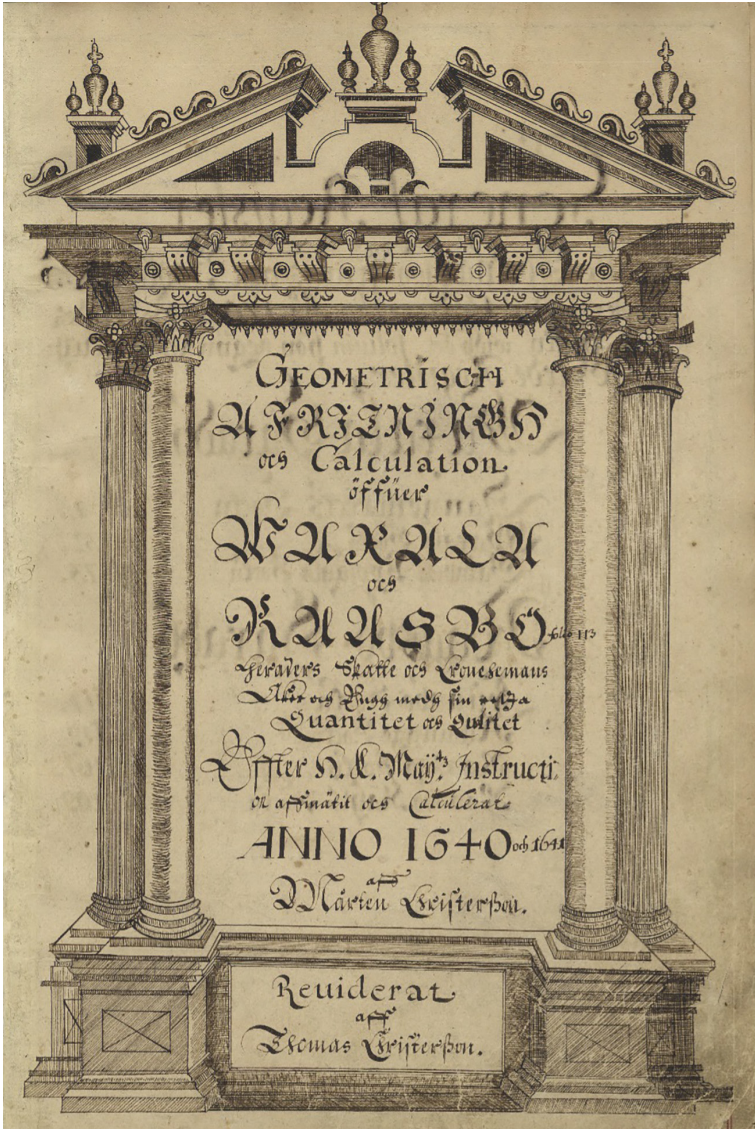 GEOMETRISCH
AFRITNINGH
och Calculation
öffüer
WAXALA
och
RAASBO folio 113
Heraders Skatte och Cronehemans
Aker och Engh medh sin
Quantitet och Qulitet
Effter H. K. Mayttz Instructi
on affmätit och Calculerat
ANNO 1640 och 1641
aff
Mårten Christerßon.
Reuiderat
aff
Thomas Christerßon.